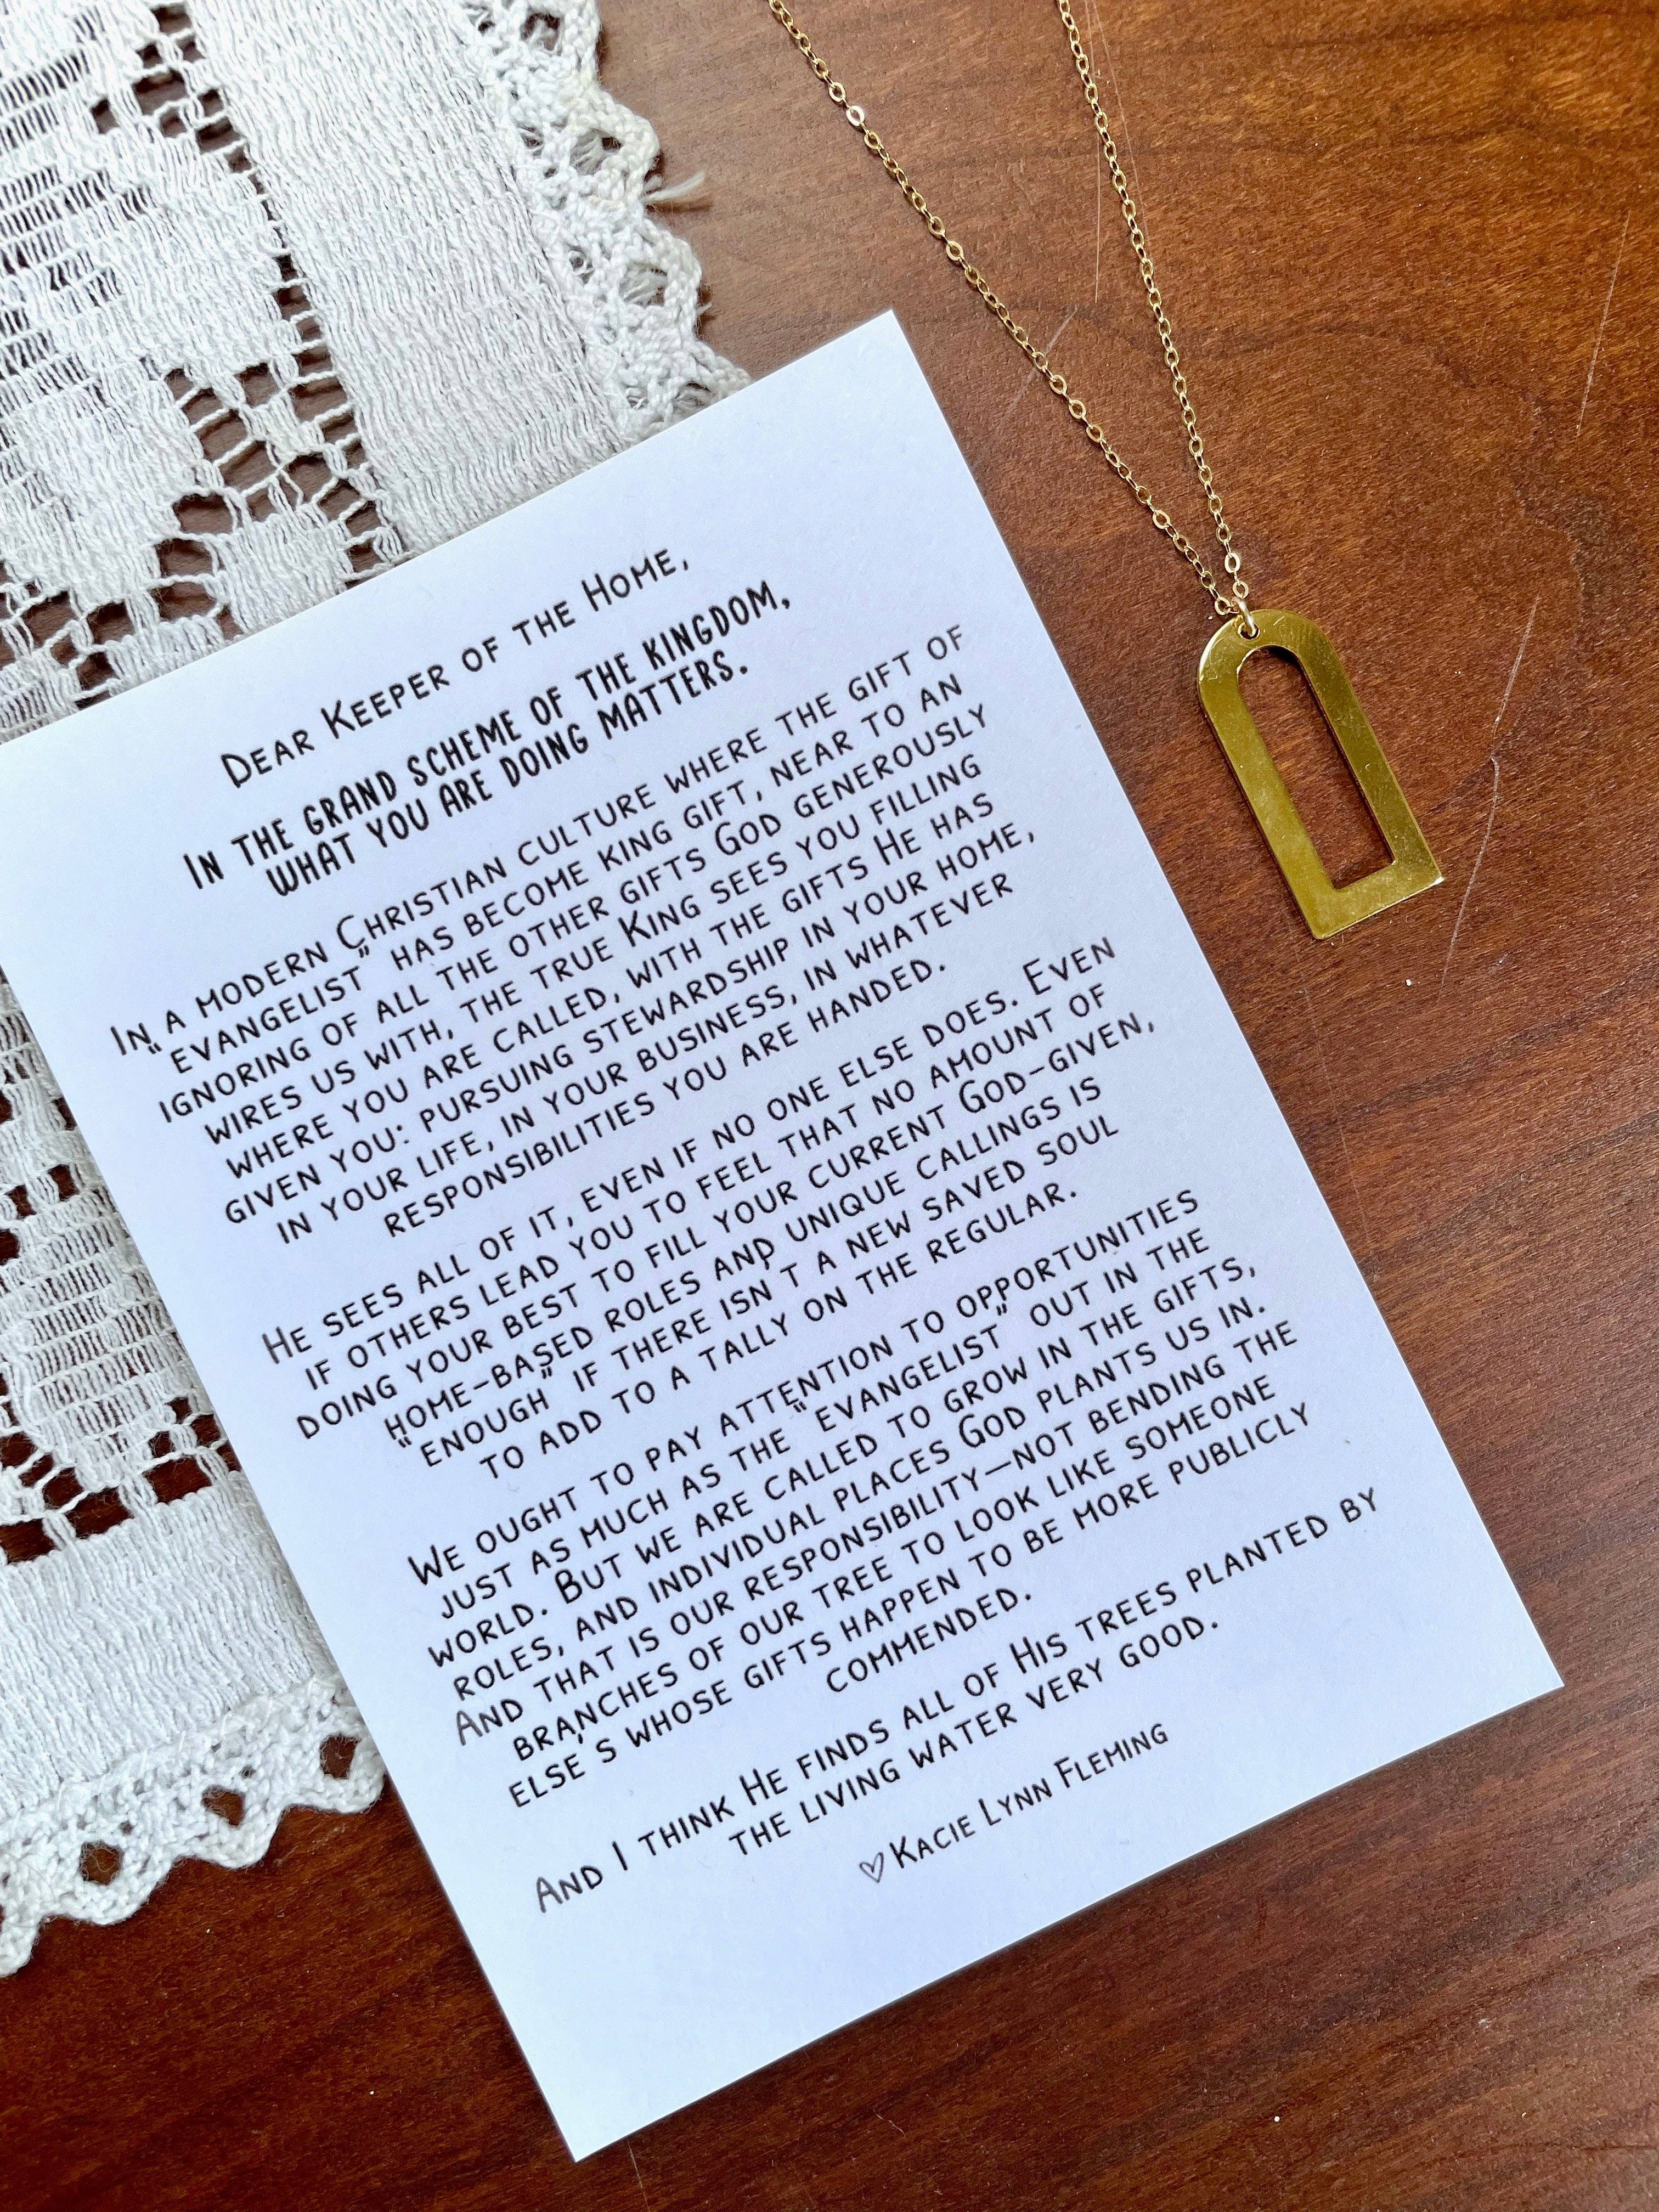 Dear Keeper of the Home,
In the grand scheme of the Kingdom,
what you are doing matters.
In a modern Christian culture where the gift of
"evangelist" has become king gift, near to an
ignoring of all the other gifts God generously
wires us with, the true King sees you filling
where you are called, with the gifts He has
given you: pursuing stewardship in your home,
in your life, in your business, in whatever
responsibilities you are handed.
He sees all of it, even if no one else does. Even
if others lead you to feel that no amount of
doing your best to fill your current God-given,
home-based roles and unique callings is
"enough" if there isn't a new saved soul
to add to a tally on the regular.
We ought to pay attention to opportunities
just as much as the "evangelist" out in the
world. But we are called to grow in the gifts,
roles, and individual places God plants us in.
And that is our responsibility—not bending the
branches of our tree to look like someone
else's whose gifts happen to be more publicly
commended.
And I think He finds all of His trees planted by
the living water very good.
♡ Kacie Lynn Fleming